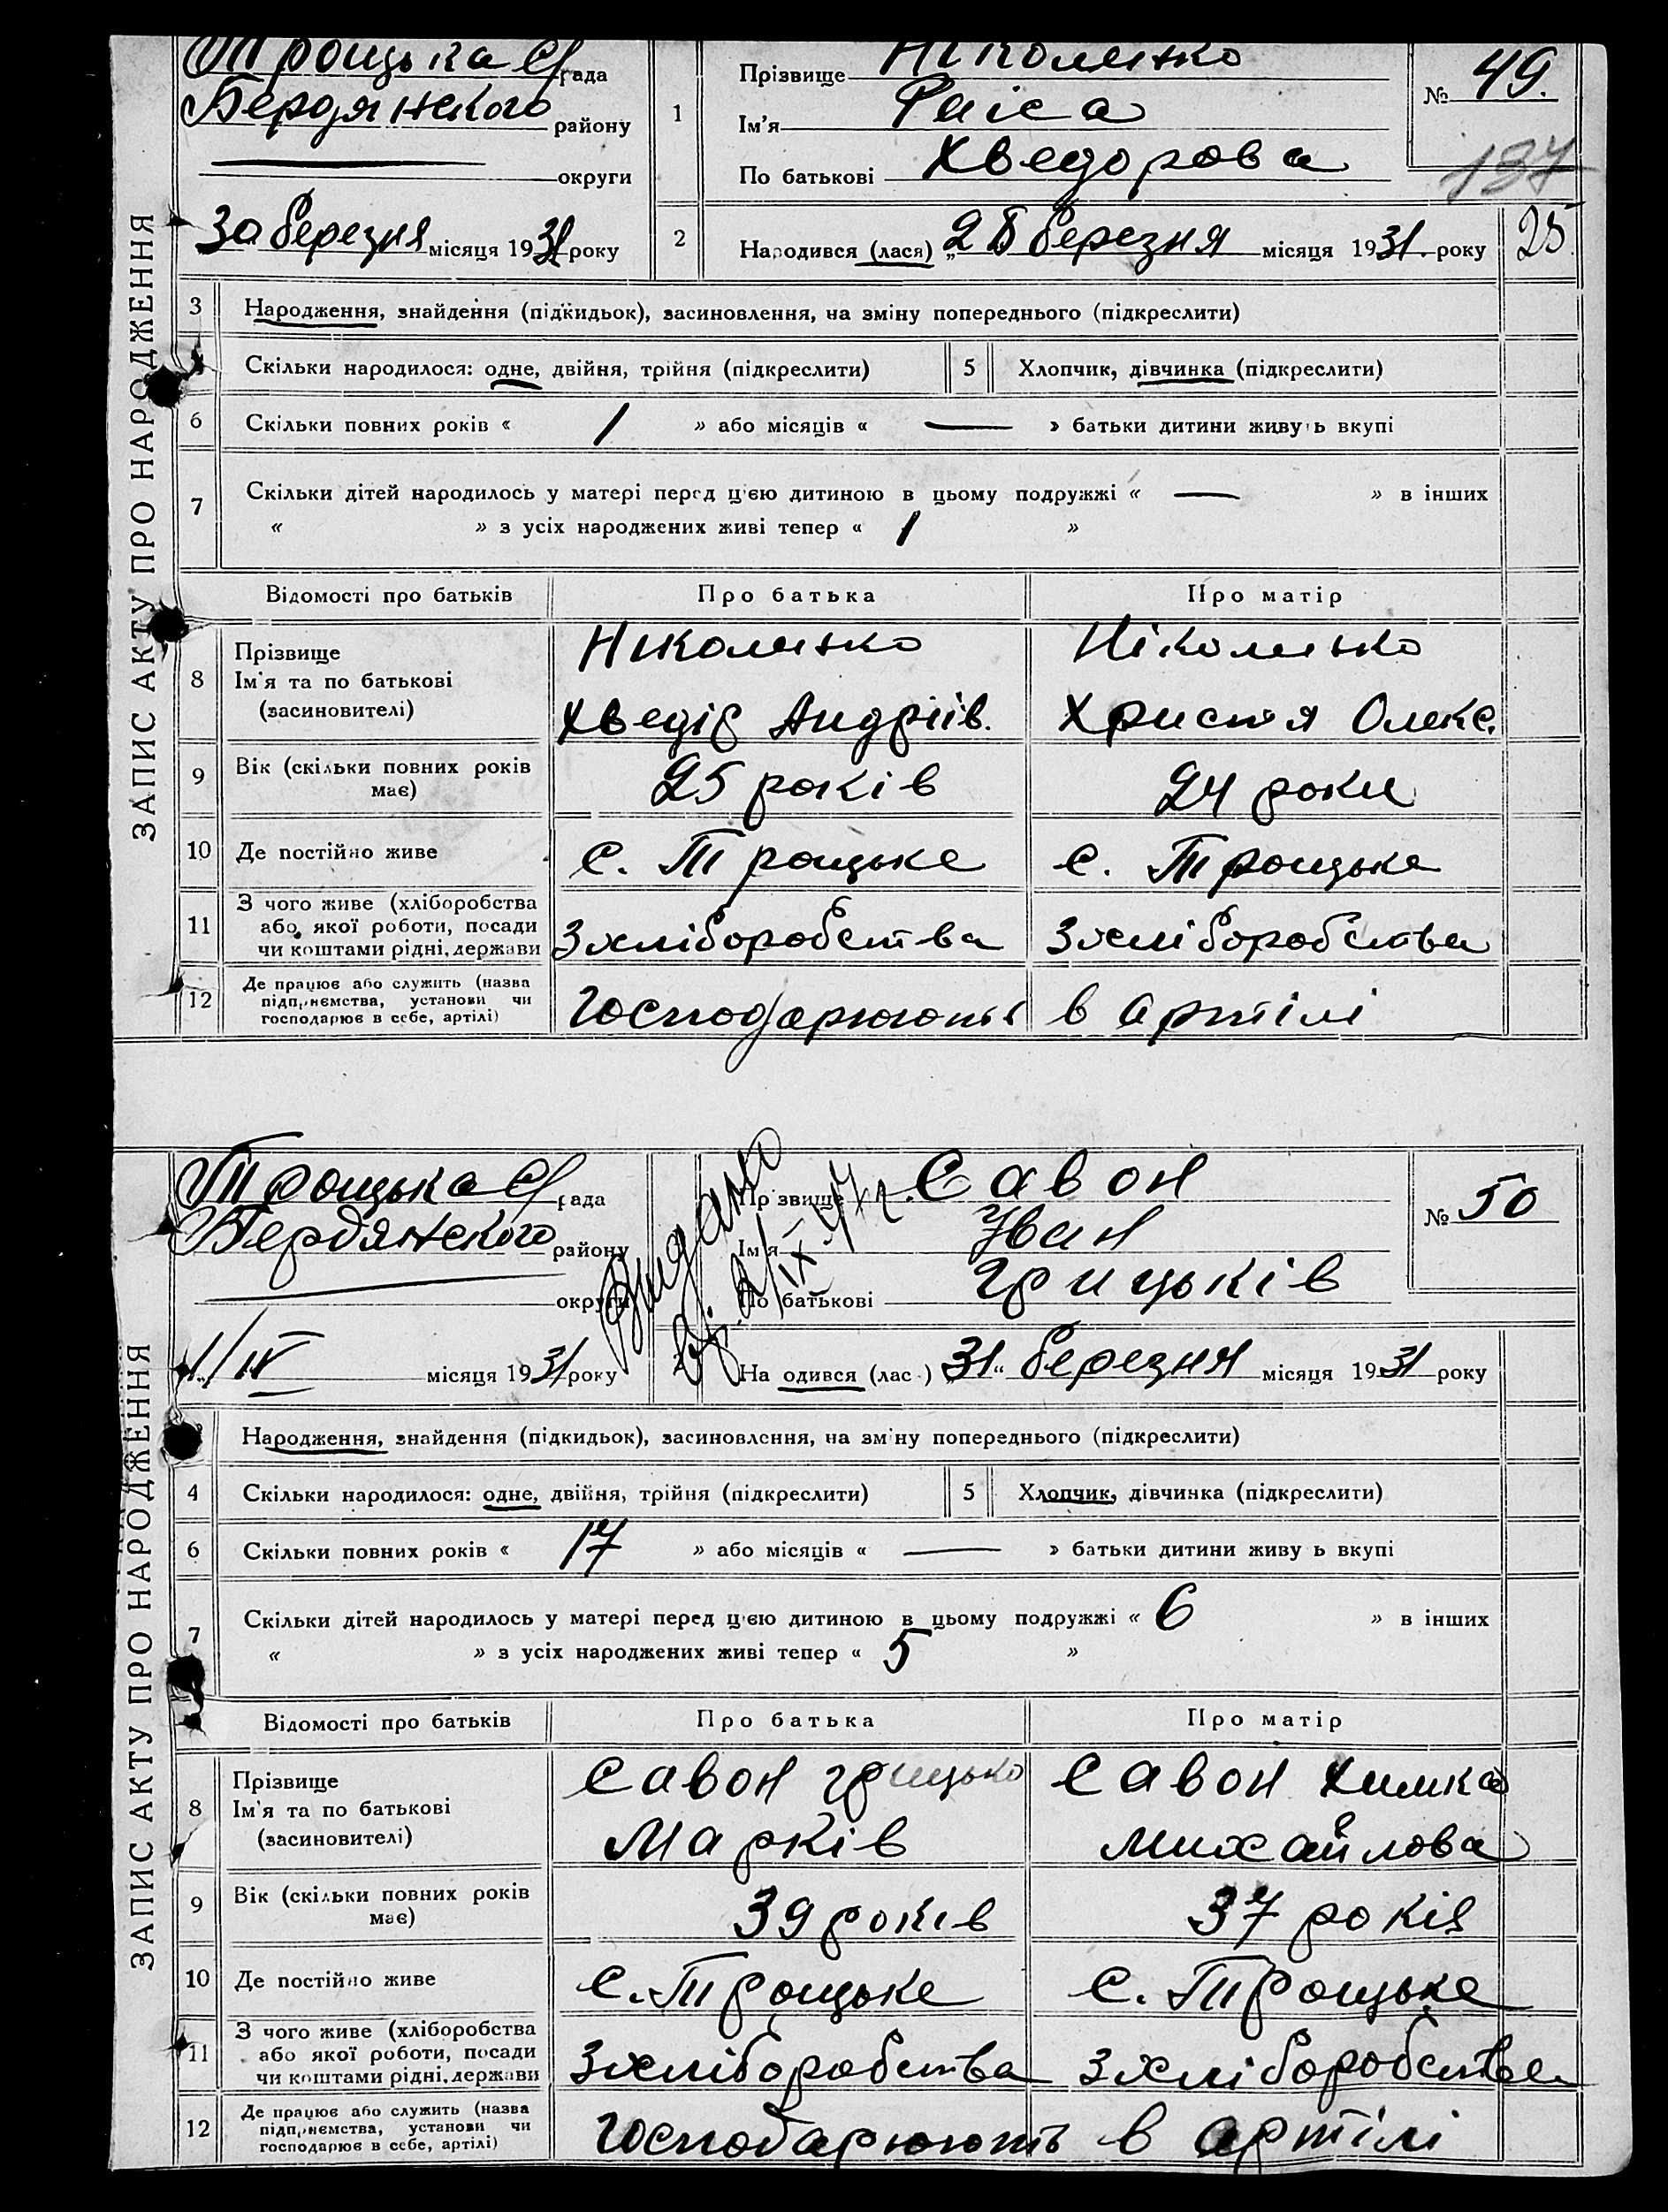 ЗАПИС АКТУ ПРО НАРОДЖЕННЯ
Троцька с/рада
Бердянського району
округи
30 березня місяця 1931 року
1 Прізвище Ніколенко
Ім'я Раіса
По батькові Хведорова
№ 49.
137
2 Народився (лася) „25 березня місяця 1931. року
25
3 Народження, знайдення (підкидьок), засиновлення, на зміну попереднього (підкреслити)
Скільки народилося: одне, двійня, трійня (підкреслити) 5 Хлопчик, дівчинка (підкреслити)
6 Скільки повних років « 1 » або місяців « — » батьки дитини живуть вкупі
7 Скільки дітей народилось у матері перед цією дитиною в цьому подружжі « — » в інших
« » з усіх народжених живі тепер « 1 »
Відомості про батьків Про батька Про матір
8 Прізвище Ім'я та по батькові (засиновителі)
Николенко Ніколенко
Хведір Андріів. Христя Олекс.
9 Вік (скільки повних років має) 25 років 24 роки
10 Де постійно живе с. Троцьке с. Троцьке
11 З чого живе (хліборобства або якої роботи, посади чи коштами рідні, держави
З хліборобства З хліборобства
12 Де працює або служить (назва підприємства, установи чи господарює в себе, артілі)
Господарюють в артілі
ЗАПИС АКТУ ПРО НАРОДЖЕННЯ
Троцька с/рада
Бердянського району
округи
1/IV місяця 1931 року
Видано
Прізвище Савон
Ім'я Іван
По батькові Грицьків
№ 50
2 Народився (лась) „31“ березня місяця 1931 року
Народження, знайдення (підкидьок), засиновлення, на зміну попереднього (підкреслити)
4 Скільки народилося: одне, двійня, трійня (підкреслити) 5 Хлопчик, дівчинка (підкреслити)
6 Скільки повних років « 17 » або місяців « — » батьки дитини живуть вкупі
7 Скільки дітей народилось у матері перед цією дитиною в цьому подружжі « 6 » в інших
« » з усіх народжених живі тепер « 5 »
Відомості про батьків Про батька Про матір
8 Прізвище Ім'я та по батькові (засиновителі)
Савон Грицько Савон Химка
Марків Михайлова
9 Вік (скільки повних років має) 39 років 37 років
10 Де постійно живе с. Троцьке с. Троцьке
11 З чого живе (хліборобства або якої роботи, посади чи коштами рідні, держави
З хліборобства З хліборобства
12 Де працює або служить (назва підприємства, установи чи господарює в себе, артілі)
Господарюють в артілі